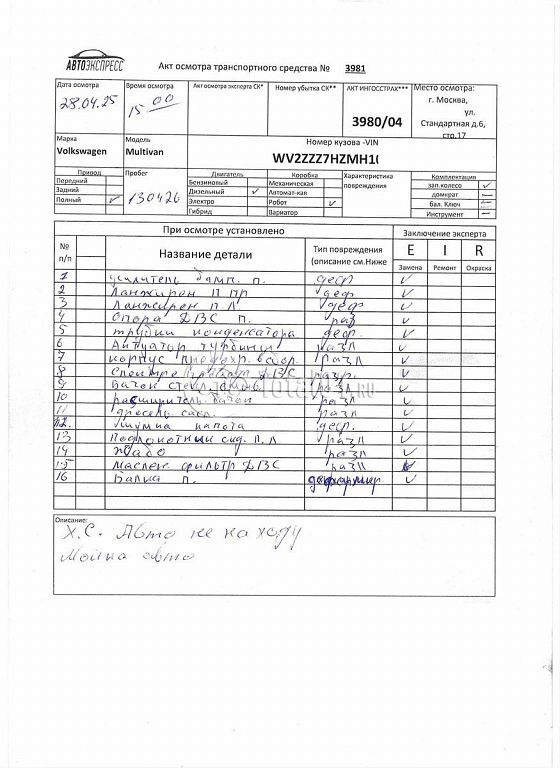 АВТОЭКСПРЕСС
Акт осмотра транспортного средства № 3981
Дата осмотра Время осмотра Акт осмотра эксперта СК* Номер убытка СК** АКТ ИНГОССТРАХ*** Место осмотра:
28.04.25 15 00 3980/04 г. Москва, ул. Стандартная д.6, стр.17
Марка Модель Номер кузова -VIN
Volkswagen Multivan WV2ZZZ7HZMH1
Привод Пробег Двигатель Коробка Характеристика повреждения Комплектация
Передний Бензиновый Механическая зап.колесо ✓
Задний 130426 Дизельный ✓ Автомат-кая домкрат —
Полный ✓ Электро Робот ✓ бал. Ключ —
Гибрид Вариатор Инструмент —
При осмотре установлено Заключение эксперта
№ п/п Название детали Тип повреждения (описание см.Ниже E I R
Замена Ремонт Окраска
1 усилитель бамп. п. деф ✓
2 Ланжирон П пр деф ✓
3 Ланжирон п. Л деф ✓
4 Опора ДВС п. раз ✓
5 трубки конденсатора деф. ✓
6 Актуатор турбины разл ✓
7 корпус предохр. разл ✓
8 ДВС разр. ✓
9 бачок стекл. разл ✓
10 расширитель бачок разл ✓
11 разл ✓
12. капота деф. ✓
13 Подлокотник сид. п. Л разл ✓
14 Жабо разл ✓
15 маслен фильтр ДВС разл ✓
16 Балка п. деформир ✓
Описание:
Х.С. Авто не на ходу
Мойка авто